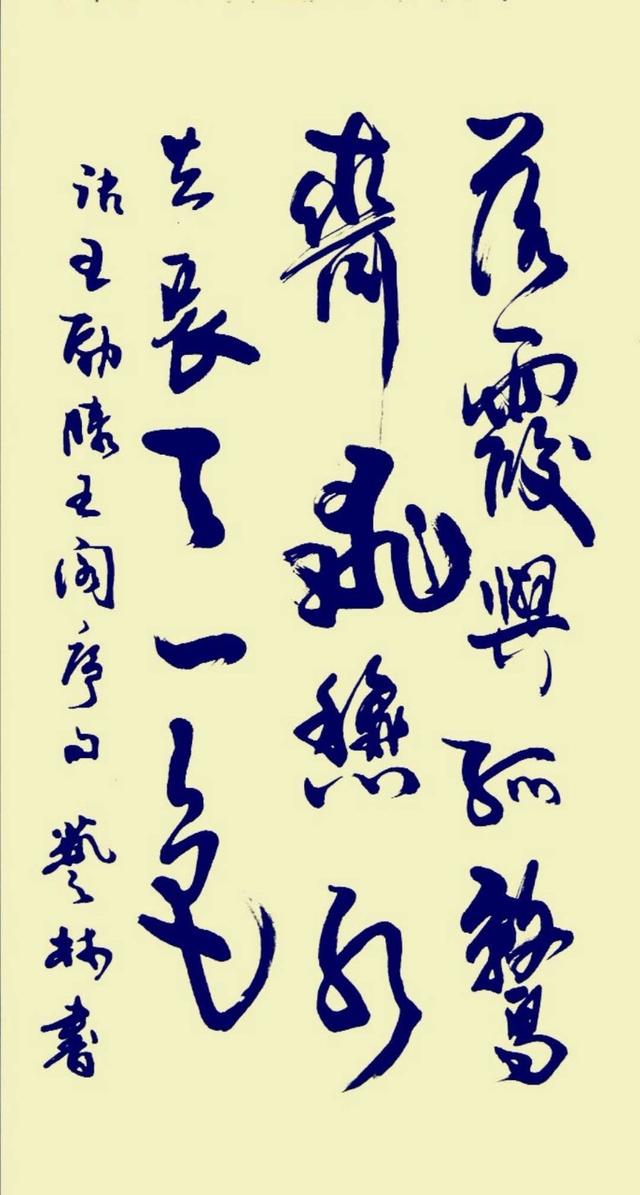 落霞與孤鶩
齊飛秋水
共長天一色
王勃滕王閣序句 藝林書